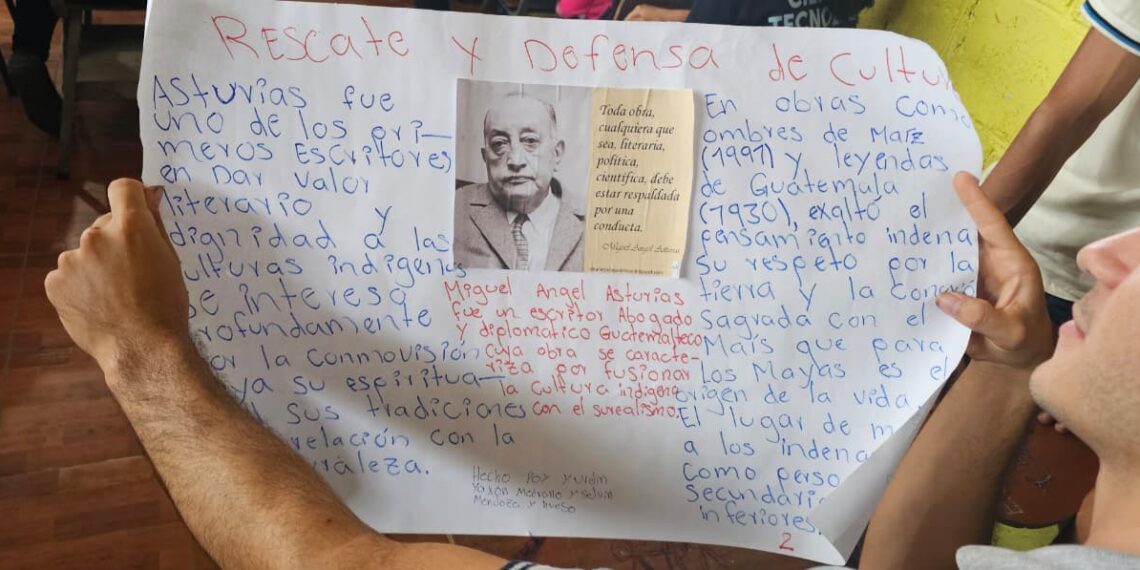 Rescate y Defensa de Cultu
Asturias fue
uno de los pri-
meros Escritores
en Dar valor
literario y
dignidad a las
culturas indígenas
se interesa
profundamente
por la Conmovisión
maya su espiritua-
sus tradiciones
relación con la
uraleza.
Toda obra,
cualquiera que
sea, literaria,
política,
científica, debe
estar respaldada
por una
conducta.
Miguel Angel Asturias
Miguel Angel Asturias
fue un escritor Abogado
y diplomático Guatemalteco
cuya obra se caracte-
riza por fusionar
la cultura indígena
con el surealismo.
Hecho Por yurdin
y hueso
En obras como
ombres de Maíz
(1991) y leyendas
de Guatemala
(1930), exaltó el
pensamiento indena
su respeto por la
tierra y la
Sagrada con el
Maís que para
los Mayas es el
origen de la vida
El lugar de m
a los indena
como perso
Secundari
inferiores.
2
TECNOL